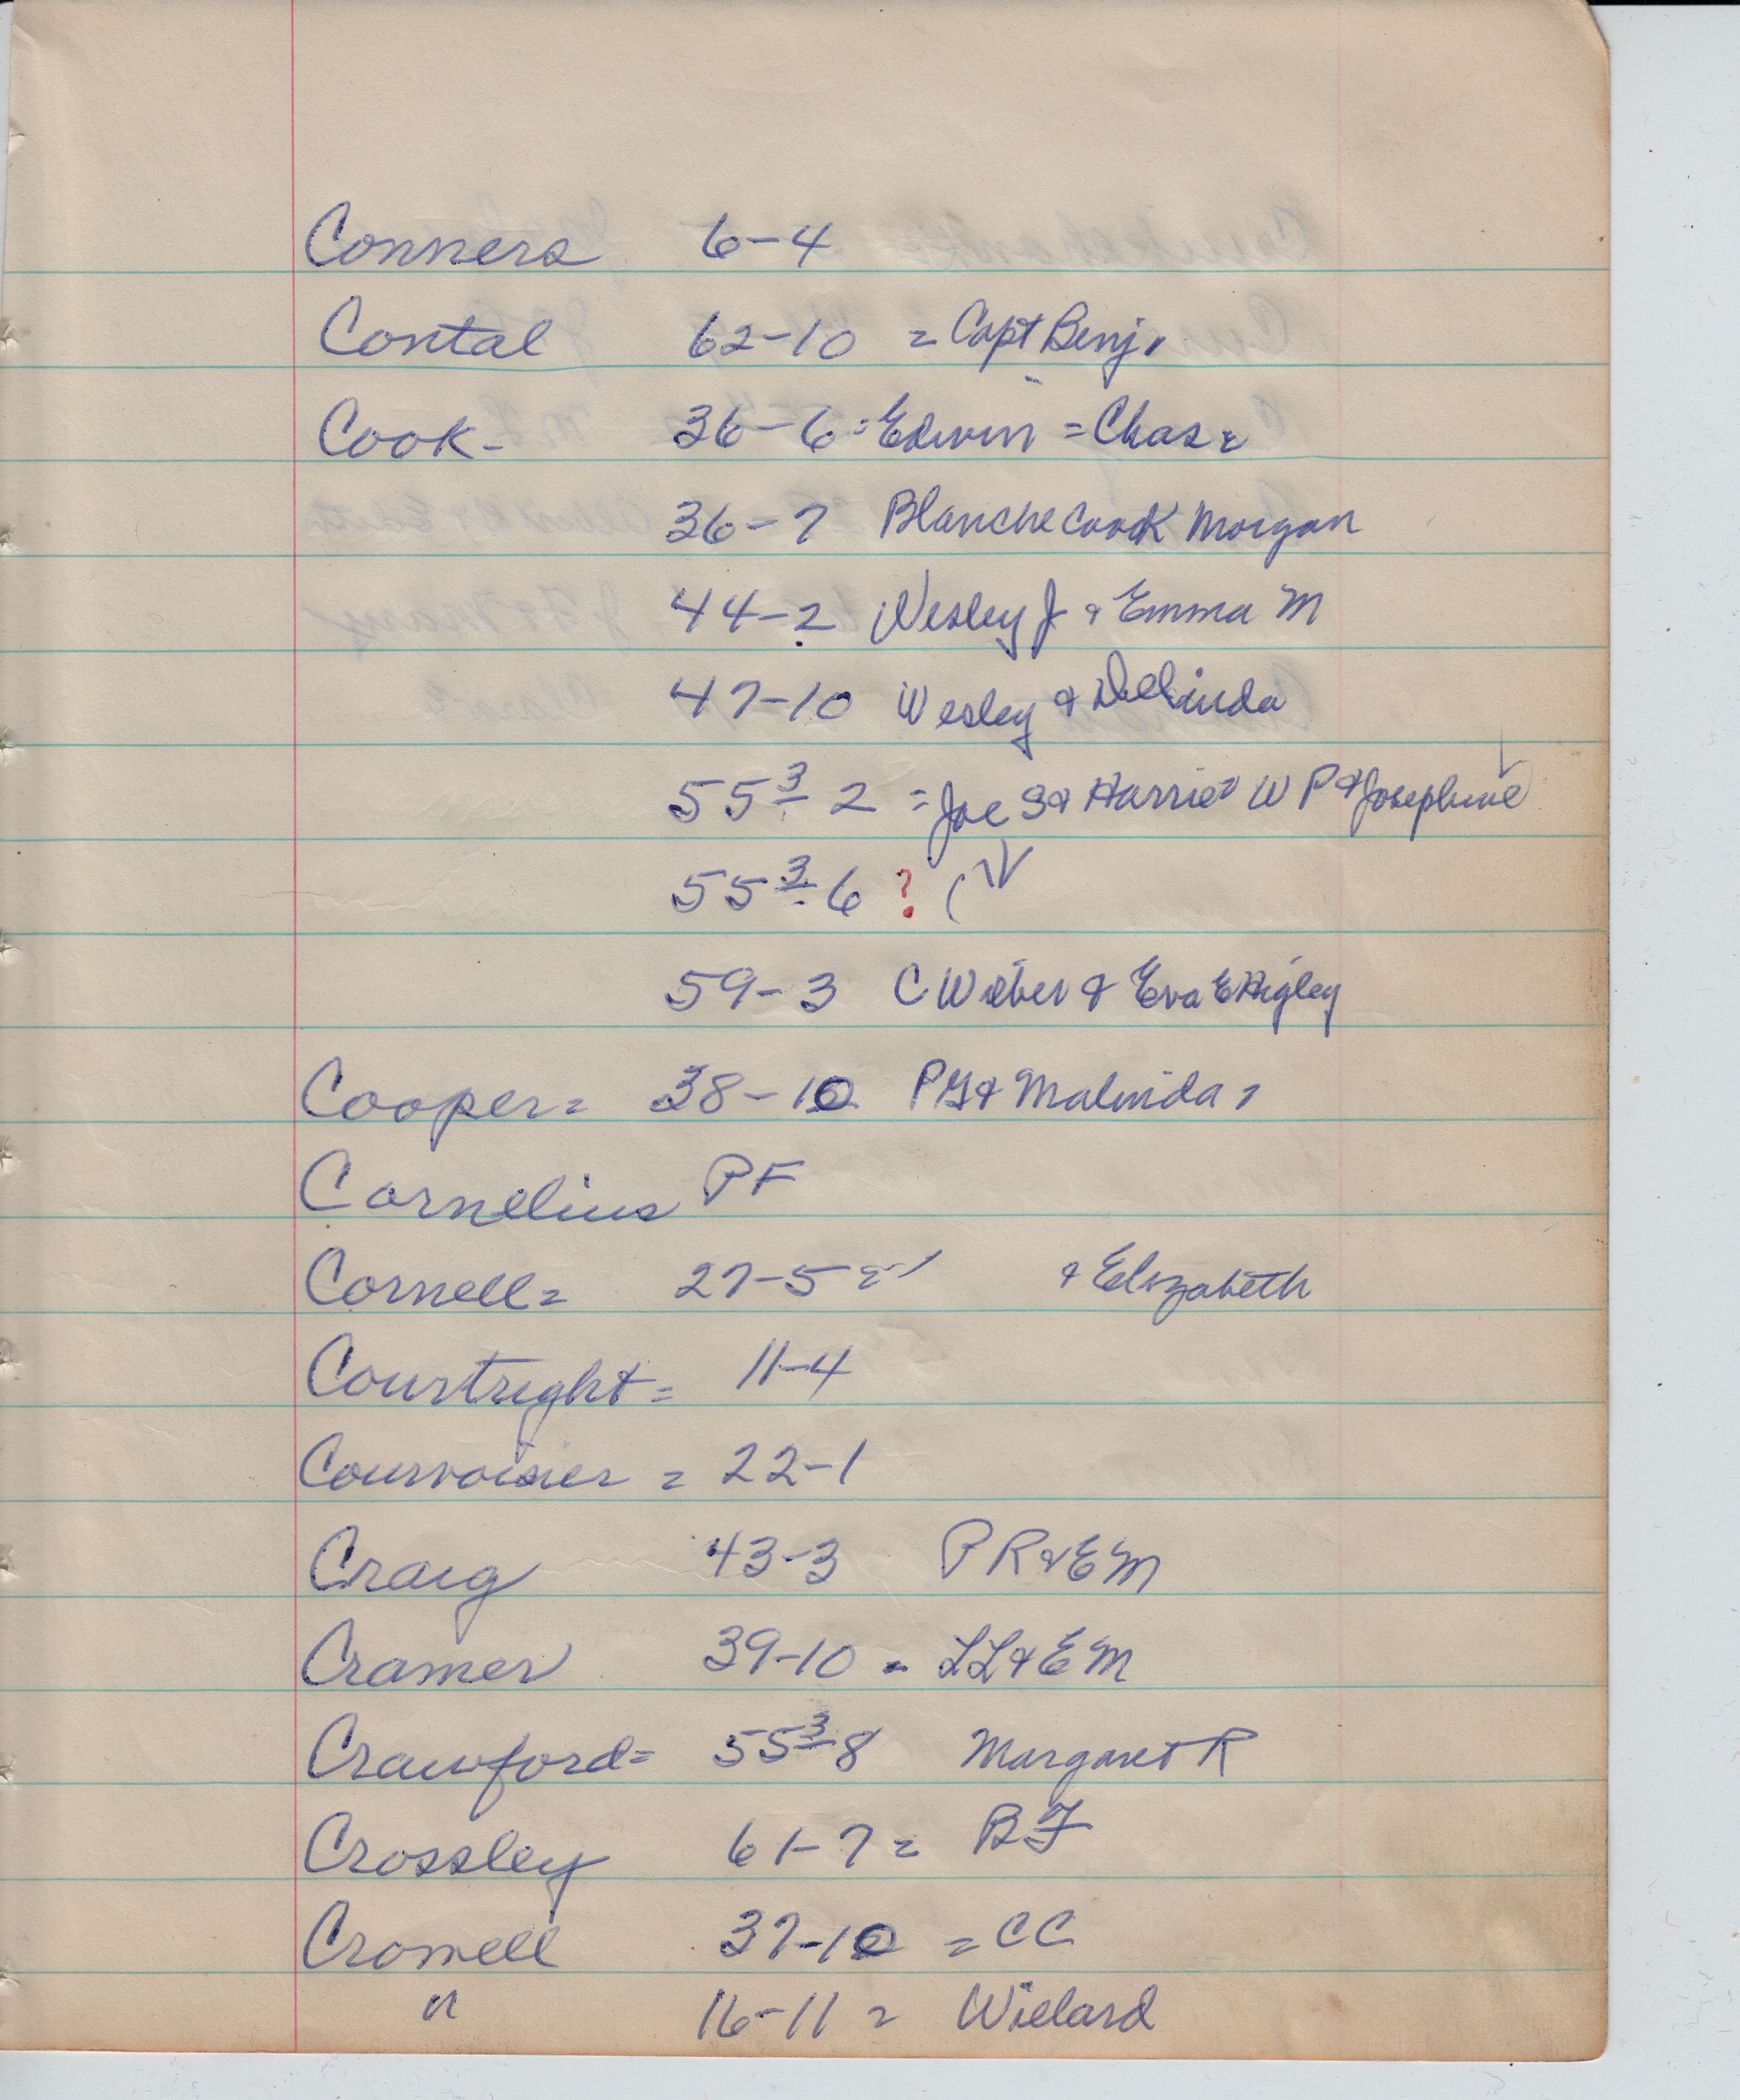 Conners 6-4
Contal 62-10 = Capt Benj.
Cook- 36-6 = Edwin = Chas =
36-7 Blanche Cook Morgan
44-2 Wesley J & Emma M
47-10 Wesley & Dellinda
55 3 - 2 = Joe S & Harriet W P & Josephine
55 3 - 6 ?
59-3 C Wilber & Eva E Higley
Cooper = 38-10 P G & Malinda =
Cornelius PF
Cornell = 27-5 = & Elizabeth
Courtright = 11-4
Courvoisier = 22-1
Craig 43-3 P R & E M
Cramer 39-10 = L L & E M
Crawford = 55 3 - 8 Margaret R
Crossley 61-7 = B F
Cromell 37-10 = CC
" 16-11 = Wielard